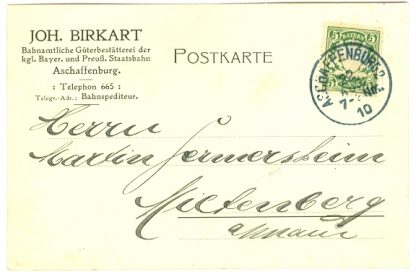 JOH. BIRKART
Bahnamtliche Güterbestätterei der
kgl. Bayer. und Preuß. Staatsbahn
Aschaffenburg.
: Telephon 665 :
Telegr.-Adr.: Bahnspediteur.
POSTKARTE
5 5
BAYERN
ASCHAFFENBURG
7-
10
Herrn
Martin Germersheim
Miltenberg
a/Main